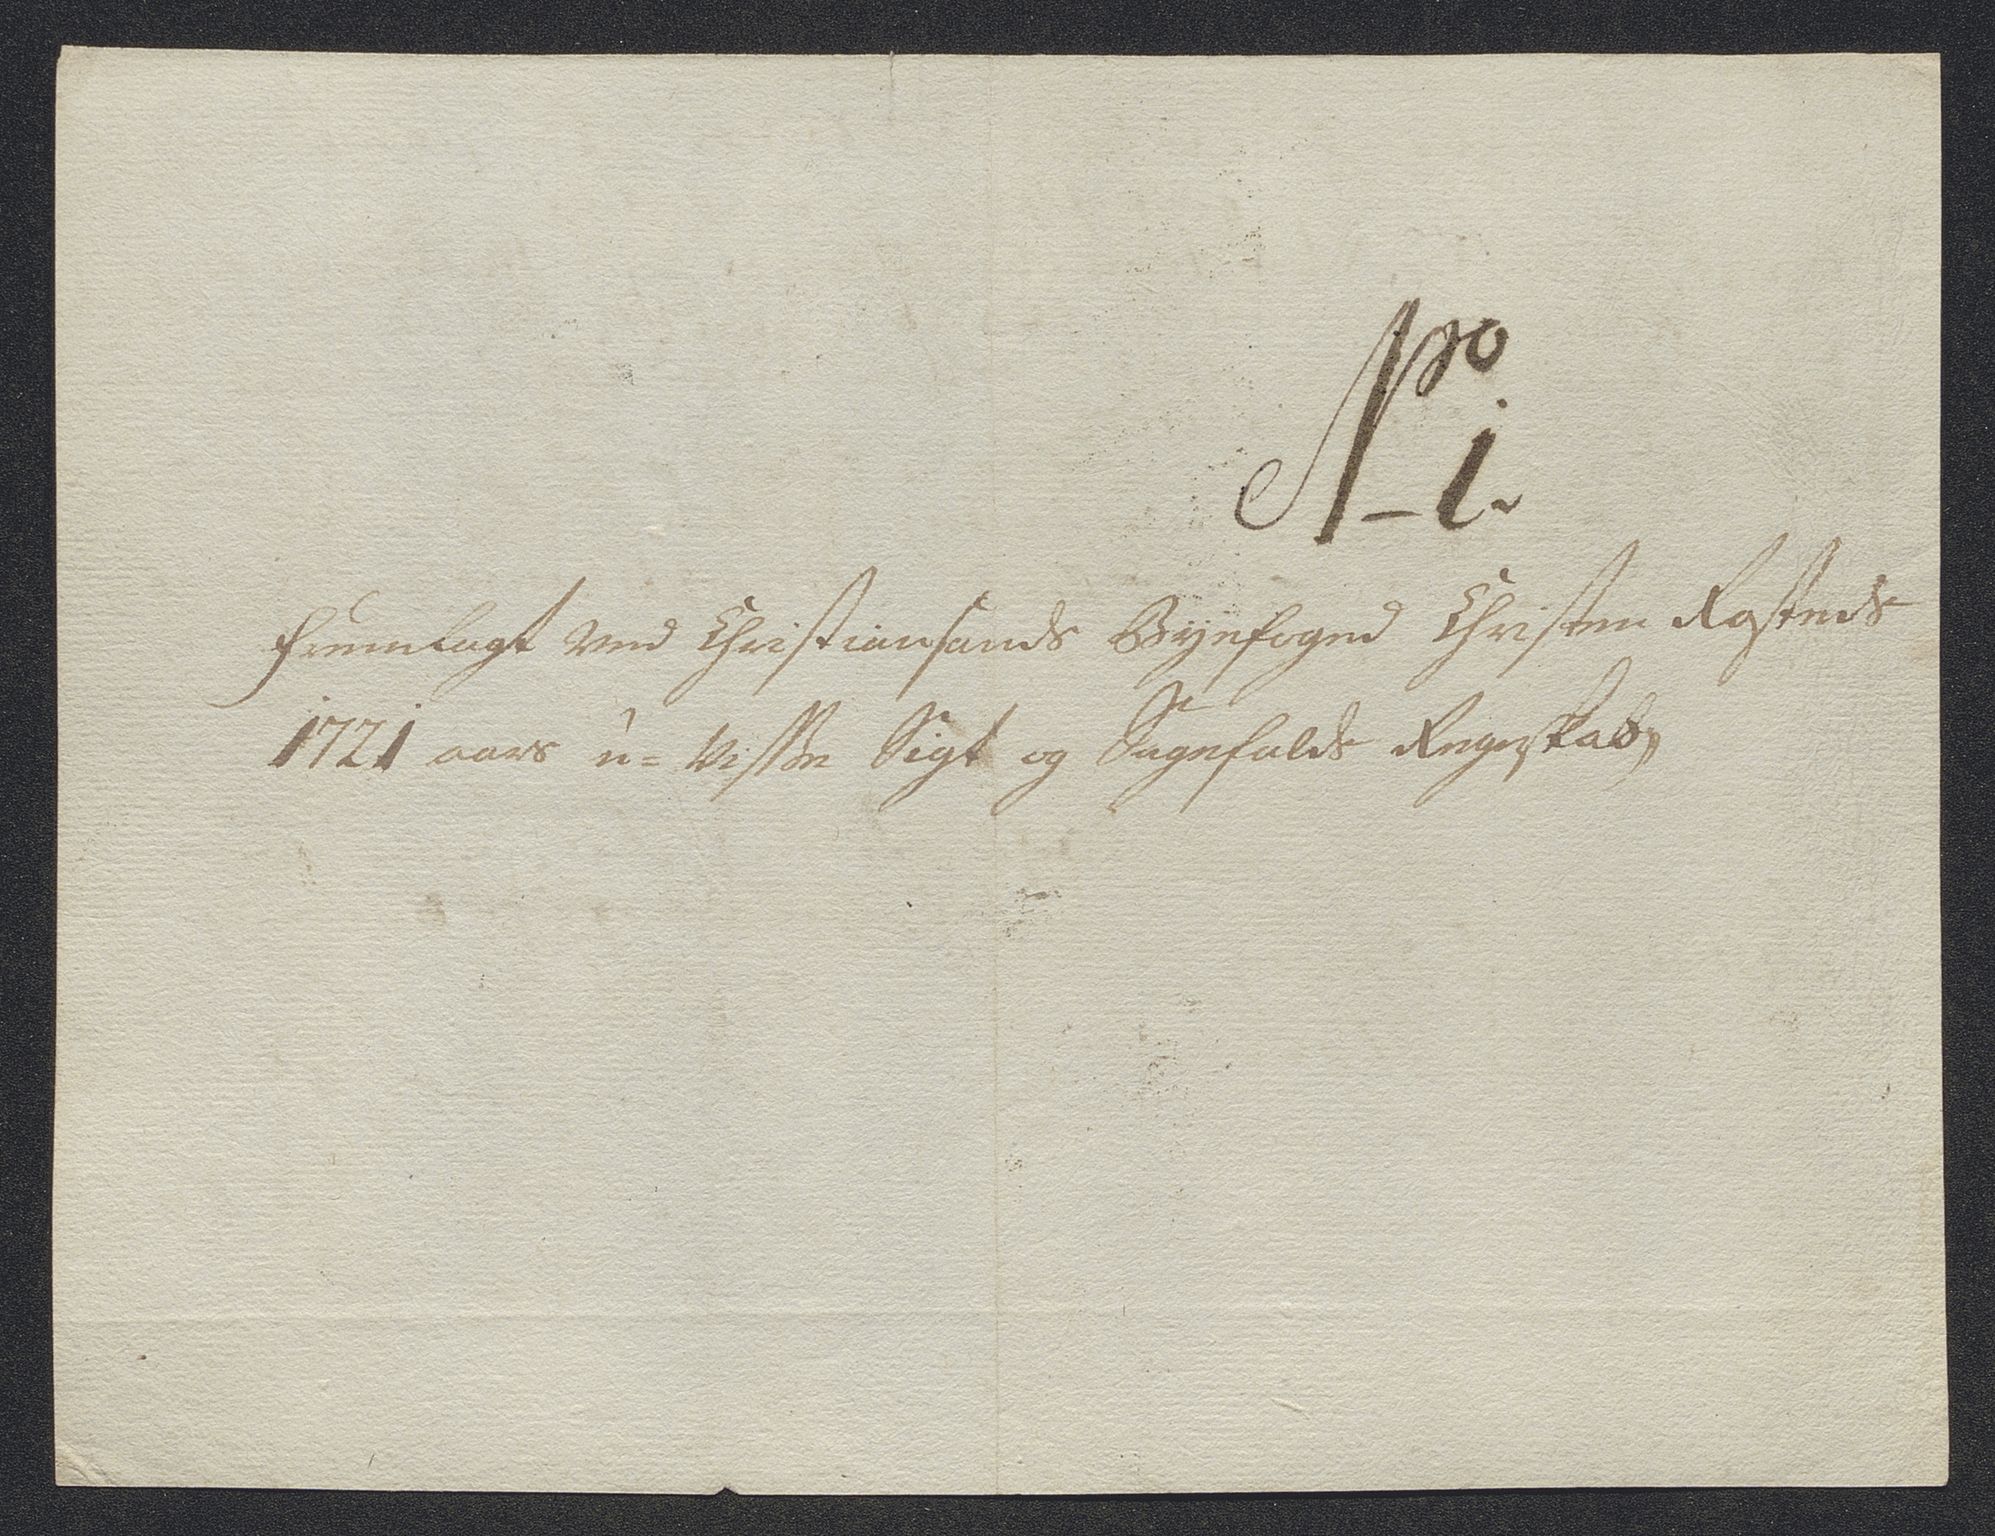 No i.
Fremlagt ved Christiansands Byefoged Christen Rosteds
1721 aars u-visse Sigt og Sagefalds Regnskab,